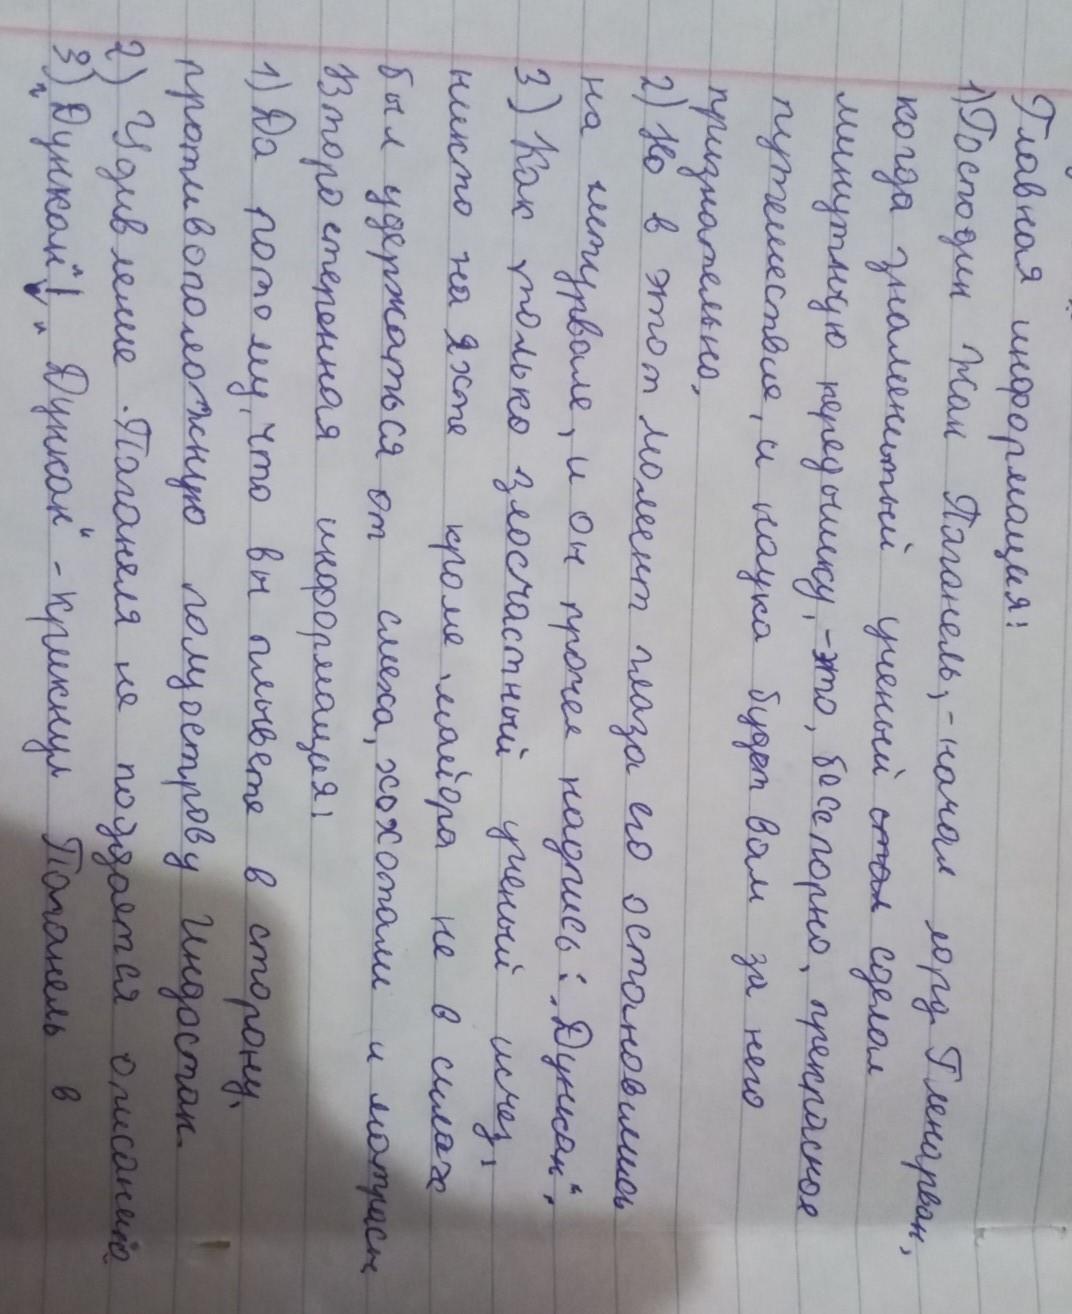 Главная информация:
1) Господин Жак Паганель, - начал лорд Гленарван,
когда знаменитый ученый стал сделал
минутную передышку, - это, бесспорно, прекрасное
путешествие, и наука будет вам за него
признательна,
2) Но в этот момент глаза его остановились
на штурвале, и он прочел надпись: „Дункан“,
3) Как только злосчастный ученый исчез,
никто на яхте кроме майора не в силах
был удержаться от смеха, хохотали и матросы
Второстепенная информация:
1) Да потому, что вы плывете в сторону,
противоположную полуострову Индостан.
2) Удивление Паганеля не поддается описанию
3) „Дункан“! „Дункан“ - крикнул Паганель в